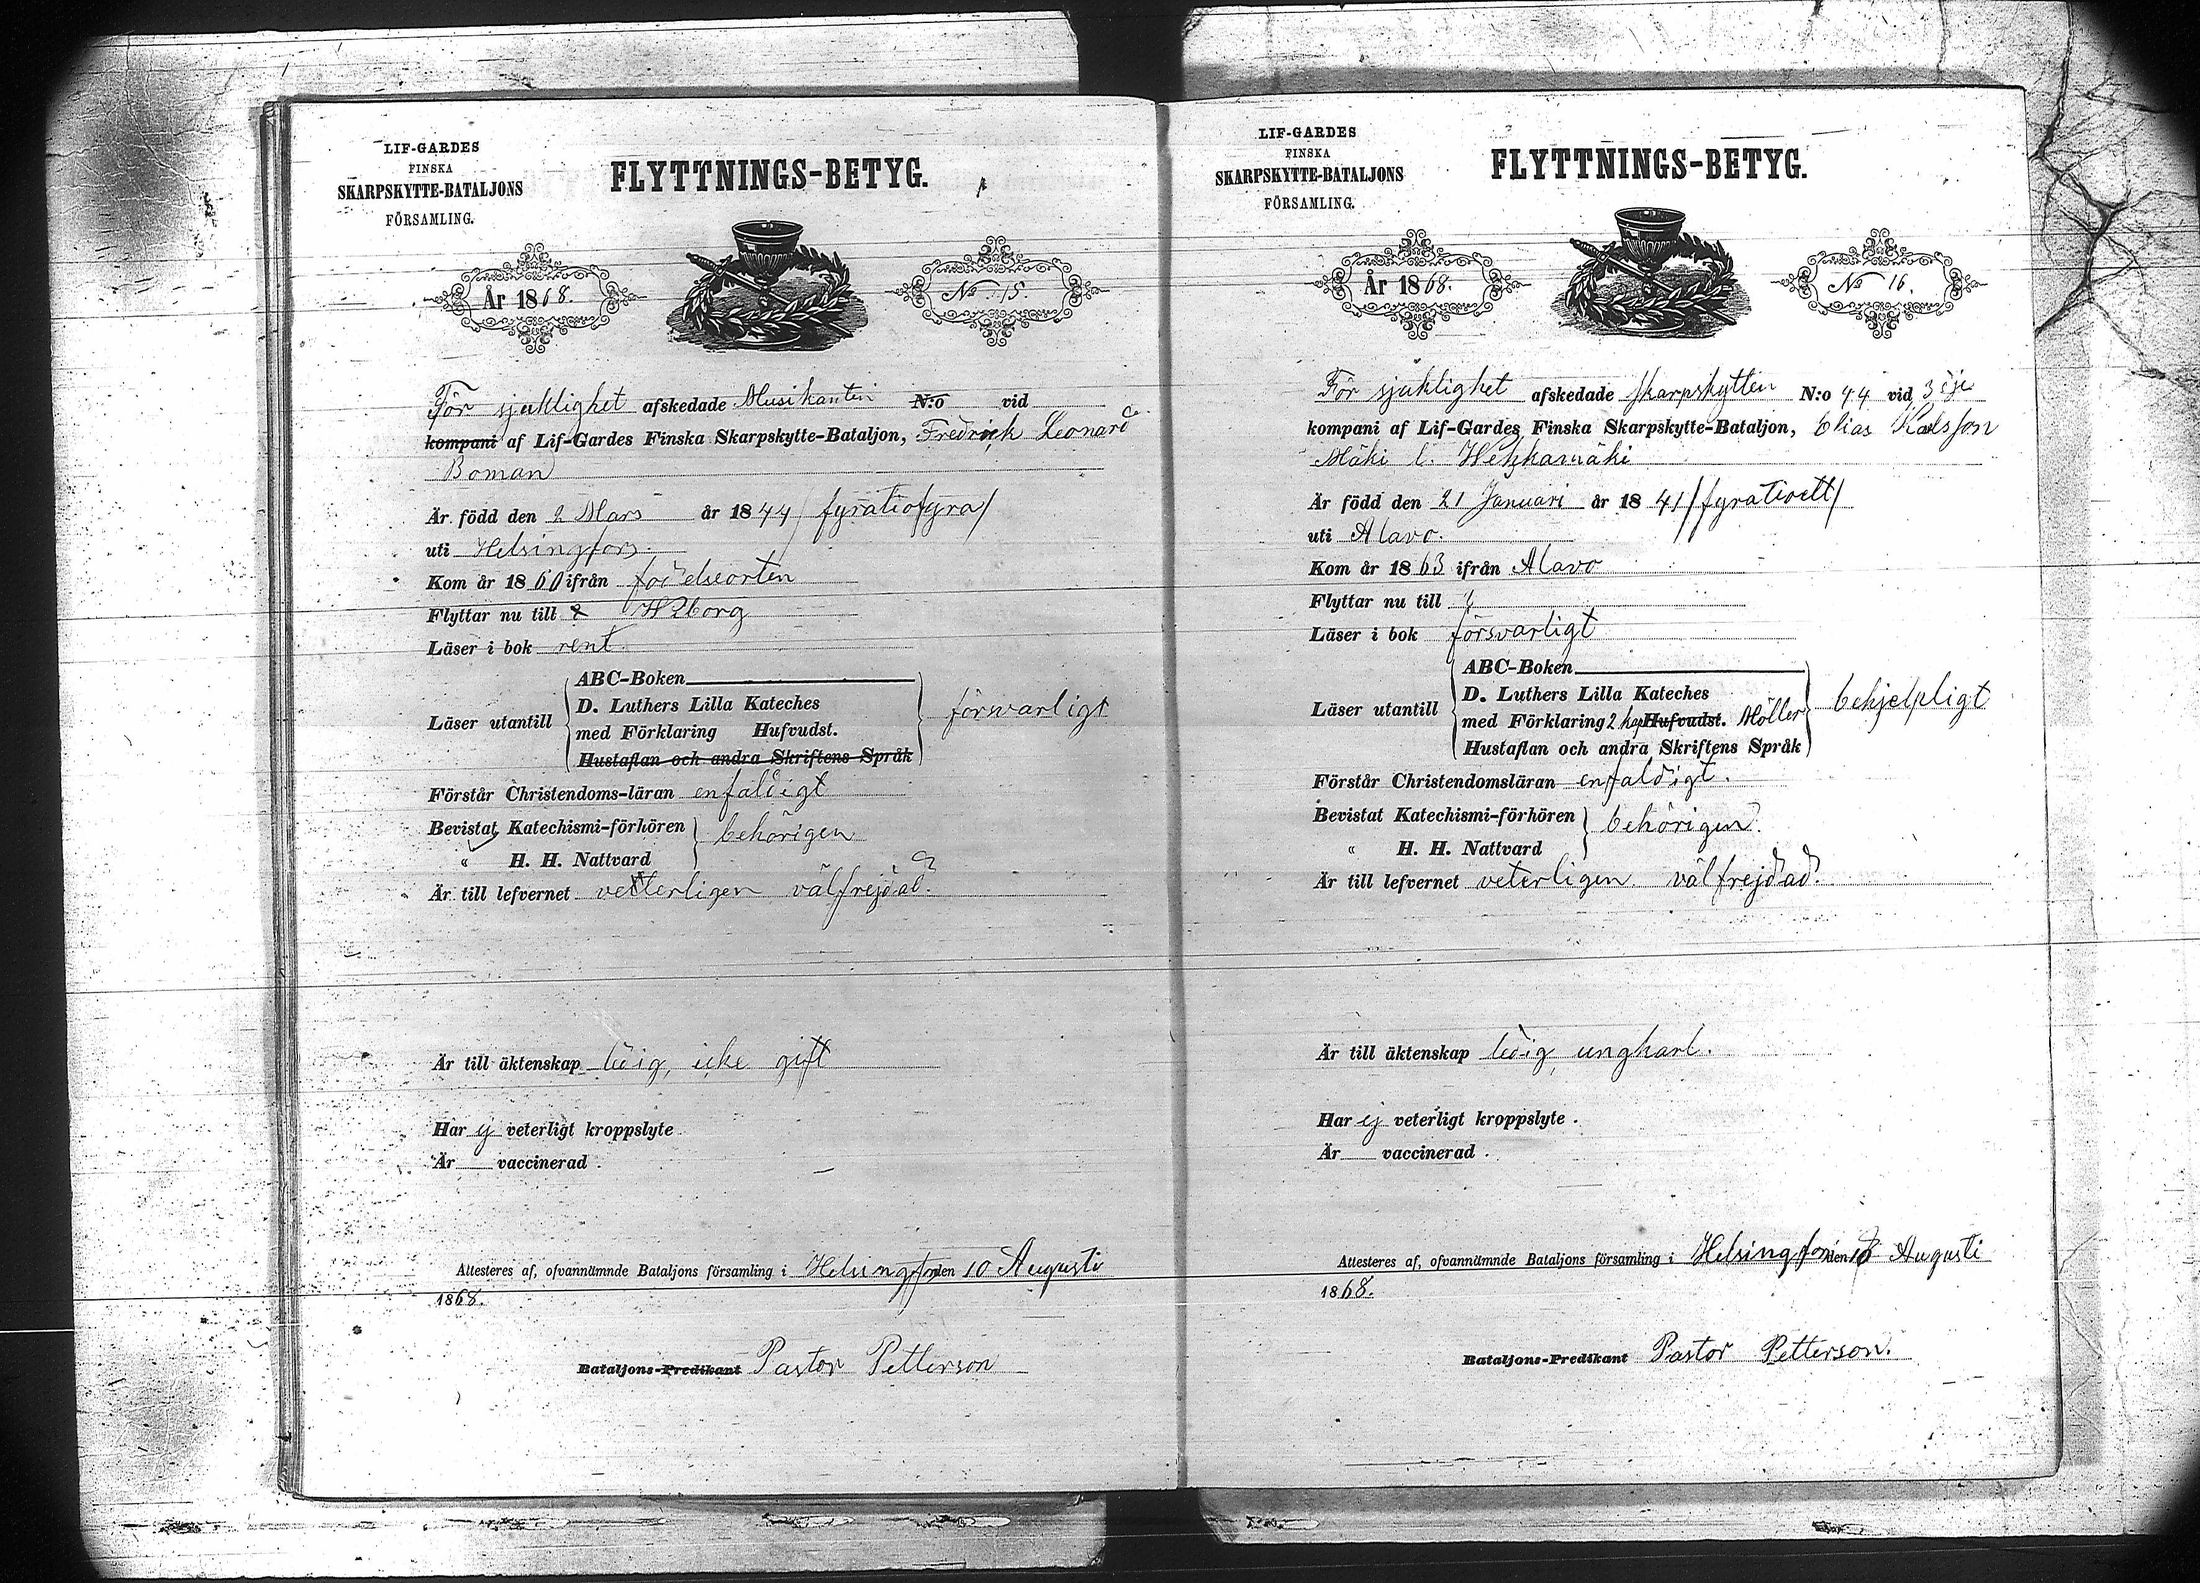 LIF-GARDES
FINSKA
SKARPSKYTTE-BATALJONS
FÖRSAMLING.
FLYTTNINGS-BETYG.
År 1868.
No 15.
För sjuklighet afskedade Musikanten N:o vid
kompani af Lif-Gardes Finska Skarpskytte-Bataljon, Fredrick Leonard
Boman
Är född den 2 Mars år 1844 /fyratiofyra/
uti Helsingfors.
Kom år 1860 ifrån födelseorten
Flyttar nu till Wiborg
Läser i bok rent.
Läser utantill
ABC-Boken
D. Luthers Lilla Kateches
med Förklaring Hufvudst.
Hustaflan och andra Skriftens Språk
försvarligt
Förstår Christendoms-läran enfaldigt
Bevistat Katechismi-förhören
" H. H. Nattvard
behörigen
Är till lefvernet vetterligen välfrejdad.
Är till äktenskap ledig, icke gift
Har ej veterligt kroppslyte
Är vaccinerad.
Attesteres af, ofvannämnde Bataljons församling i Helsingfors den 10 Augusti
1868.
Bataljons-Predikant Pastor Petterson
LIF-GARDES
FINSKA
SKARPSKYTTE-BATALJONS
FÖRSAMLING.
FLYTTNINGS-BETYG.
År 1868.
No 16.
För sjuklighet afskedade skarpskytten N:o 44 vid 3dje
kompani af Lif-Gardes Finska Skarpskytte-Bataljon, Elias Karlsson
Mäki l.
Är född den 21 Januari år 1841 /fyratioett/
uti Alavo.
Kom år 1863 ifrån Alavo
Flyttar nu till
Läser i bok försvarligt
Läser utantill
ABC-Boken
D. Luthers Lilla Kateches
med Förklaring 2 kap Hufvudst. Möller
Hustaflan och andra Skriftens Språk
behjelpligt
Förstår Christendomsläran enfaldigt.
Bevistat Katechismi-förhören
" H. H. Nattvard
behörigen.
Är till lefvernet veterligen välfrejdad.
Är till äktenskap ledig, ungkarl.
Har ej veterligt kroppslyte.
Är vaccinerad.
Attesteres af, ofvannämnde Bataljons församling i Helsingfors den 10 Augusti
1868.
Bataljons-Predikant Pastor Petterson.